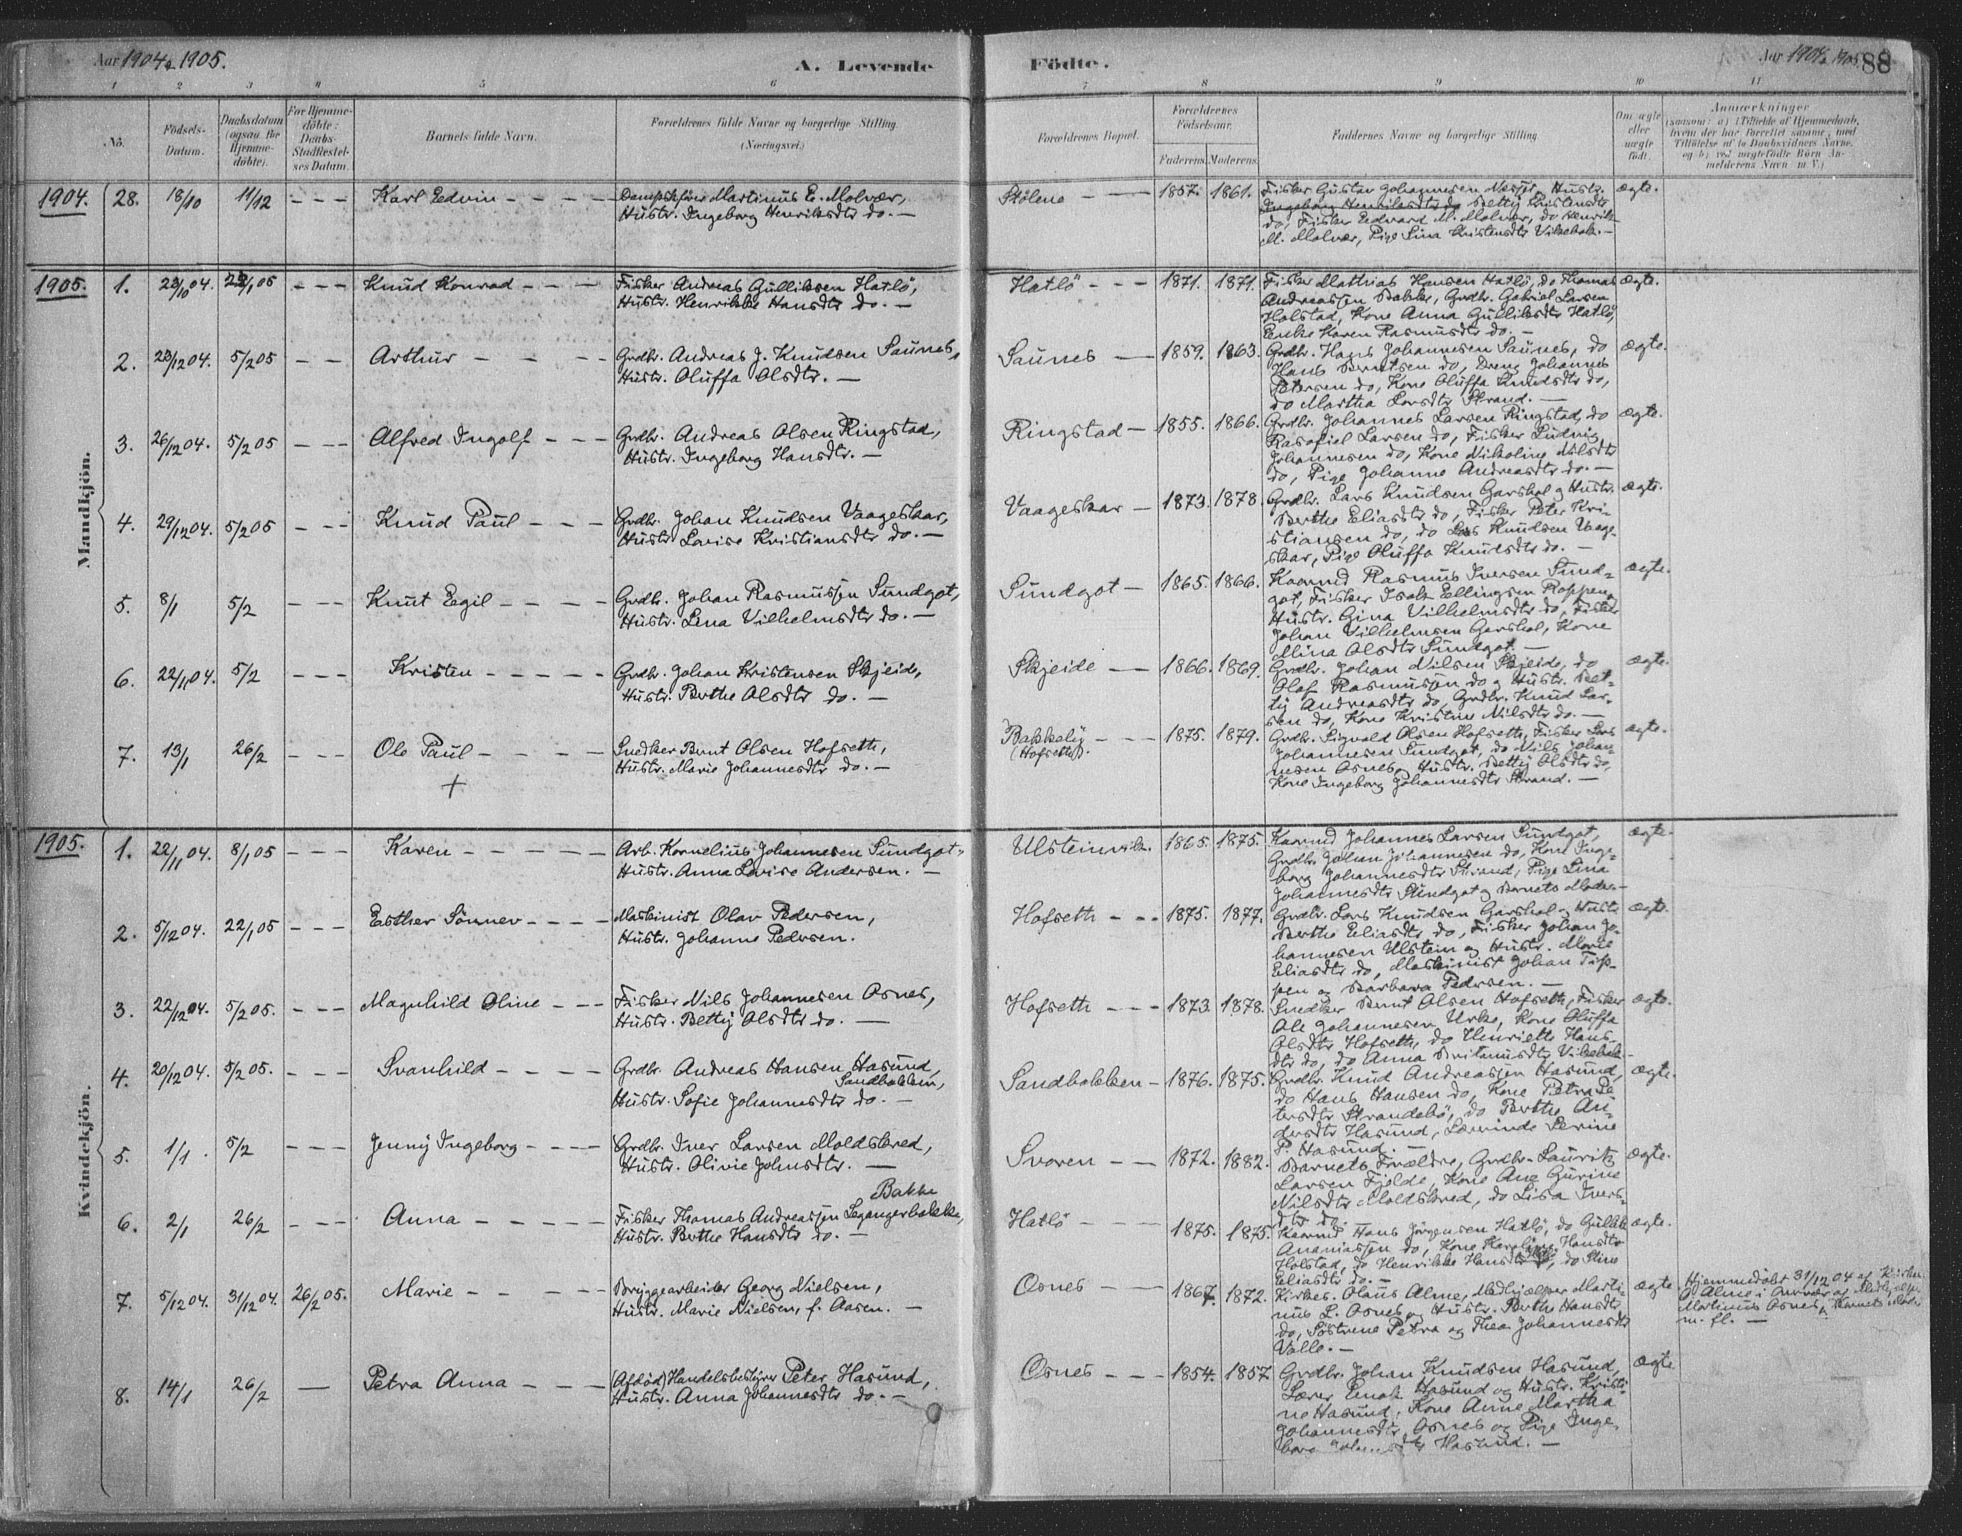 Aar 1904 & 1905.
A. Levende
Födte.
Aar 1904 & 1905.
88
1 2 3 4 5 6 7 8 9 10 11
No.
Födsels-
Datum.
Daabsdatum
(ogsaa for
Hjemme-
döbte).
For Hjemme-
döbte:
Daabs-
Stadfæstel-
ses Datum.
Barnets fulde Navn.
Forældrenes fulde Navne og borgerlige Stilling
(Næringsvei.)
Forældrenes Bopæl.
Forældrenes
Födselsaar.
Faderens. Moderens.
Faddernes Navne og borgerlige Stilling.
Om ægte
eller
uægte
födt.
Anmærkninger
(saasom: a) i Tilfælde af Hjemmedaab,
hvem der har forrettet samme, med
Tilföielse af to Daabsvidners Navne,
og b) ved uægtefödte Börn An-
melderens Navn m. V.)
1904. 28. 18/10 11/12 - - - Karl Edvin - - - -
Dampskfører Martinus E. Molvær,
Hustr. Ingeborg Henriksdtr do. -
Stølene - - 1857. 1861.
Fisker Gustav Johannesen Nesset, Hustr.
Ingeborg Henriksdtr do Betty Kristensdtr
do, Fisker Edvard M. Molvær, do Henrik
M. Molvær, Pige Lina Kristensdtr Vikebak. -
ægte.
1905.
Mandkjön.
1. 23/10 04. 22/1 05 - - - Knud Konrad - - -
Fisker Andreas Gulliksen Hatlö,
Hustr. Henrikke Hansdtr do. -
Hatlö - - - 1871. 1871.
Fisker Mathias Hansen Hatlö, do Thomas
Andreassen Bakke, Grdbr. Gabriel Larsen
Holstad, Kone Anna Gulliksdtr Hatlö,
Enke Karen Rasmusdtr do. -
ægte.
2. 23/12 04. 5/2 05 - - - Arthur - - - -
Grdbr. Andreas J. Knudsen Saunes,
Hustr. Oluffa Olsdtr. -
Saunes - 1859. 1863.
Grdbr. Hans Johannesen Saunes, do
Hans Berntsen do, Dreng Johannes
Petersen do, Kone Oluffa Knudsdtr do,
do Martha Larsdtr Strand. -
ægte.
3. 26/12 04. 5/2 05 - - - Alfred Ingolf - - -
Grdbr. Andreas Olsen Ringstad,
Hustr. Ingeborg Hansdtr. -
Ringstad - 1855. 1866.
Grdbr. Johannes Larsen Ringstad, do
Rasafiel Larsen do, Fisker Ludvig
Johannesen do, Kone Nikoline Nilsdtr
do, Pige Johanne Andreasdtr do. -
ægte.
4. 29/12 04. 5/2 05 - - - Knud Paul - - -
Grdbr. Johan Knudsen Vaageskar,
Hustr. Lovise Kristiansdtr do. -
Vaageskar - 1873. 1878.
Grdbr. Lars Knudsen Garshol og Hustr.
Berthe Eliasdtr do, Fisker Peter Kri-
stiansen do, do Lars Knudsen Vaage-
skar, Pige Oluffa Knutsdtr do. -
ægte.
5. 8/1 5/2 - - - Knut Egil - - - -
Grdbr. Johan Rasmussen Sundgot,
Hustr. Lina Vilhelmsdtr do. -
Sundgot - 1865. 1866.
Kaarmd Rasmus Iversen Sund-
got, Fisker Isak Ellingsen Roppen,
Hustr. Gina Vilhelmsdtr do, Fisker
Johan Vilhelmsen Garshol, Kone
Mina Olsdtr Sundgot. -
ægte.
6. 22/11 04. 5/2 - - - Kristen - - - - -
Grdbr. Johan Kristensen Skjeide,
Hustr. Berthe Olsdtr do. -
Skjeide - - 1866. 1869.
Grdbr. Johan Nilsen Skjeide, do
Olaf Rasmussen do og Hustr. Bet-
ty Andreasdtr do, Grdbr. Knud Lar-
sen do, Kone Kristine Nilsdtr do. -
ægte.
7. 13/1 26/2 - - - Ole Paul - - - -
+
Snedker Bernt Olsen Hofseth,
Hustr. Marie Johannesdtr do. -
Bakkely - - -
(Hofseth).
1875. 1879.
Grdbr. Sigvald Olsen Hofseth, Fisker Lars
Johannesen Sundgot, do Nils Johan-
nesen Osnes, Hustr. Betty Olsdtr do,
Kone Ingeborg Johannesdtr Strand. -
ægte.
1905.
Kvindekjön.
1. 22/11 04. 8/1 05 - - - Karen - - - - -
Arb. Kornelius Johannesen Sundgot,
Hustr. Anna Lovise Andersen. -
Ulsteinvik. 1865. 1875.
Kaarmd Johannes Larsen Sundgot,
Grdbr. Johan Johannesen do, Kone Inge-
borg Johannesdtr Strand, Pige Lina
Johannesdtr Sundgot og Barnets Moder. -
ægte.
2. 5/12 04. 22/1 05 - - - Esther Sönnev - - - -
Maskinist Olav Pedersen,
Hustr. Johanne Pedersen.
Hofseth - - - 1875. 1877.
Grdbr. Lars Knudsen Garshol og Hustr.
Berthe Eliasdtr do, Fisker Johan Jo-
hannesen Ulstein og Hustr. Marie
Eliasdtr do, Maskinist Johan Tip-
pen og Barbara Pedersen. -
ægte.
3. 22/12 04. 5/2 05. - - - Magnhild Oline - - -
Fisker Nils Johannesen Osnes,
Hustr. Betty Olsdtr do. -
Hofseth - - - 1873. 1878.
Snedker Bernt Olsen Hofseth, Fisker
Ole Johannesen Urke, Kone Oluffa
Olsdtr Hofseth, do Henriette Hans-
dtr do, do Anna Vikebak. -
ægte.
4. 20/12 04. 5/2 05. - - - Svanhild - - - -
Grdbr. Andreas Hansen Hasund,
Sandbakken,
Hustr. Sofie Johannesdtr do. -
Sandbakken - 1876. 1875.
Grdbr. Knud Andreassen Hasund,
do Hans Hansen do, Kone Petra Pe-
tersdtr Strandabö, do Berthe An-
dersdtr Hasund, Lærerinde Serine
P. Hasund. -
ægte.
5. 1/1. 5/2 - - - Jenny Ingeborg - - - -
Grdbr. Iver Larsen Moldskred,
Hustr. Olivie Johnsdtr. -
Svoren - - 1872. 1882.
Barnets Forældre, Grdbr. Lauritz
Larsen Fjelde, Kone Ane Gurine
Nilsdtr Moldskred, do Lisa Ivers-
dtr do.
ægte.
6. 2/1 26/2 - - - Anna - - - - -
Bakke
Fisker Thomas Andreassen Legangerbakke,
Hustr. Berthe Hansdtr do. -
Hatlö - - - 1875. 1875.
Kaarmd Hans Jörgensen Hatlö, do Gullik
Ananiassen do, Kone Karoline Hansdtr
Holstad, do Henrikke Hansdtr, do Stine
Eliasdtr do. -
ægte.
7. 5/12 04. 31/12 04. 26/2 05. Marie - - - -
Bryggearbeider Georg Nielsen,
Hustr. Marie Nielsen, f. Aasen. -
Osnes - - - 1867. 1872.
Kirkes. Olaus Alme, Medhjælper Marti-
nus L. Osnes og Hustr. Berthe Hansdtr
do, Söstrene Petra og Thea Johannesdtr
Valle. -
ægte
Hjemmedöbt 31/12 04 af Kirkes.
O. Alme i Nærvær af Medhjælper
Martinus Osnes, Barnets Moder
m. fl. -
8. 14/1 26/2 - Petra Anna - - -
(Afdød) Handelsbestyrer Peter Hasund,
Hustr. Anna Johannesdtr do. -
Osnes - - - 1854. 1857.
Grdbr. Johan Knudsen Hasund,
Lærer Enok Hasund og Hustr. Kristi-
ne Hasund, Kone Anne Martha
Johannesdtr Osnes og Pige Inge-
borg Hasund. -
ægte